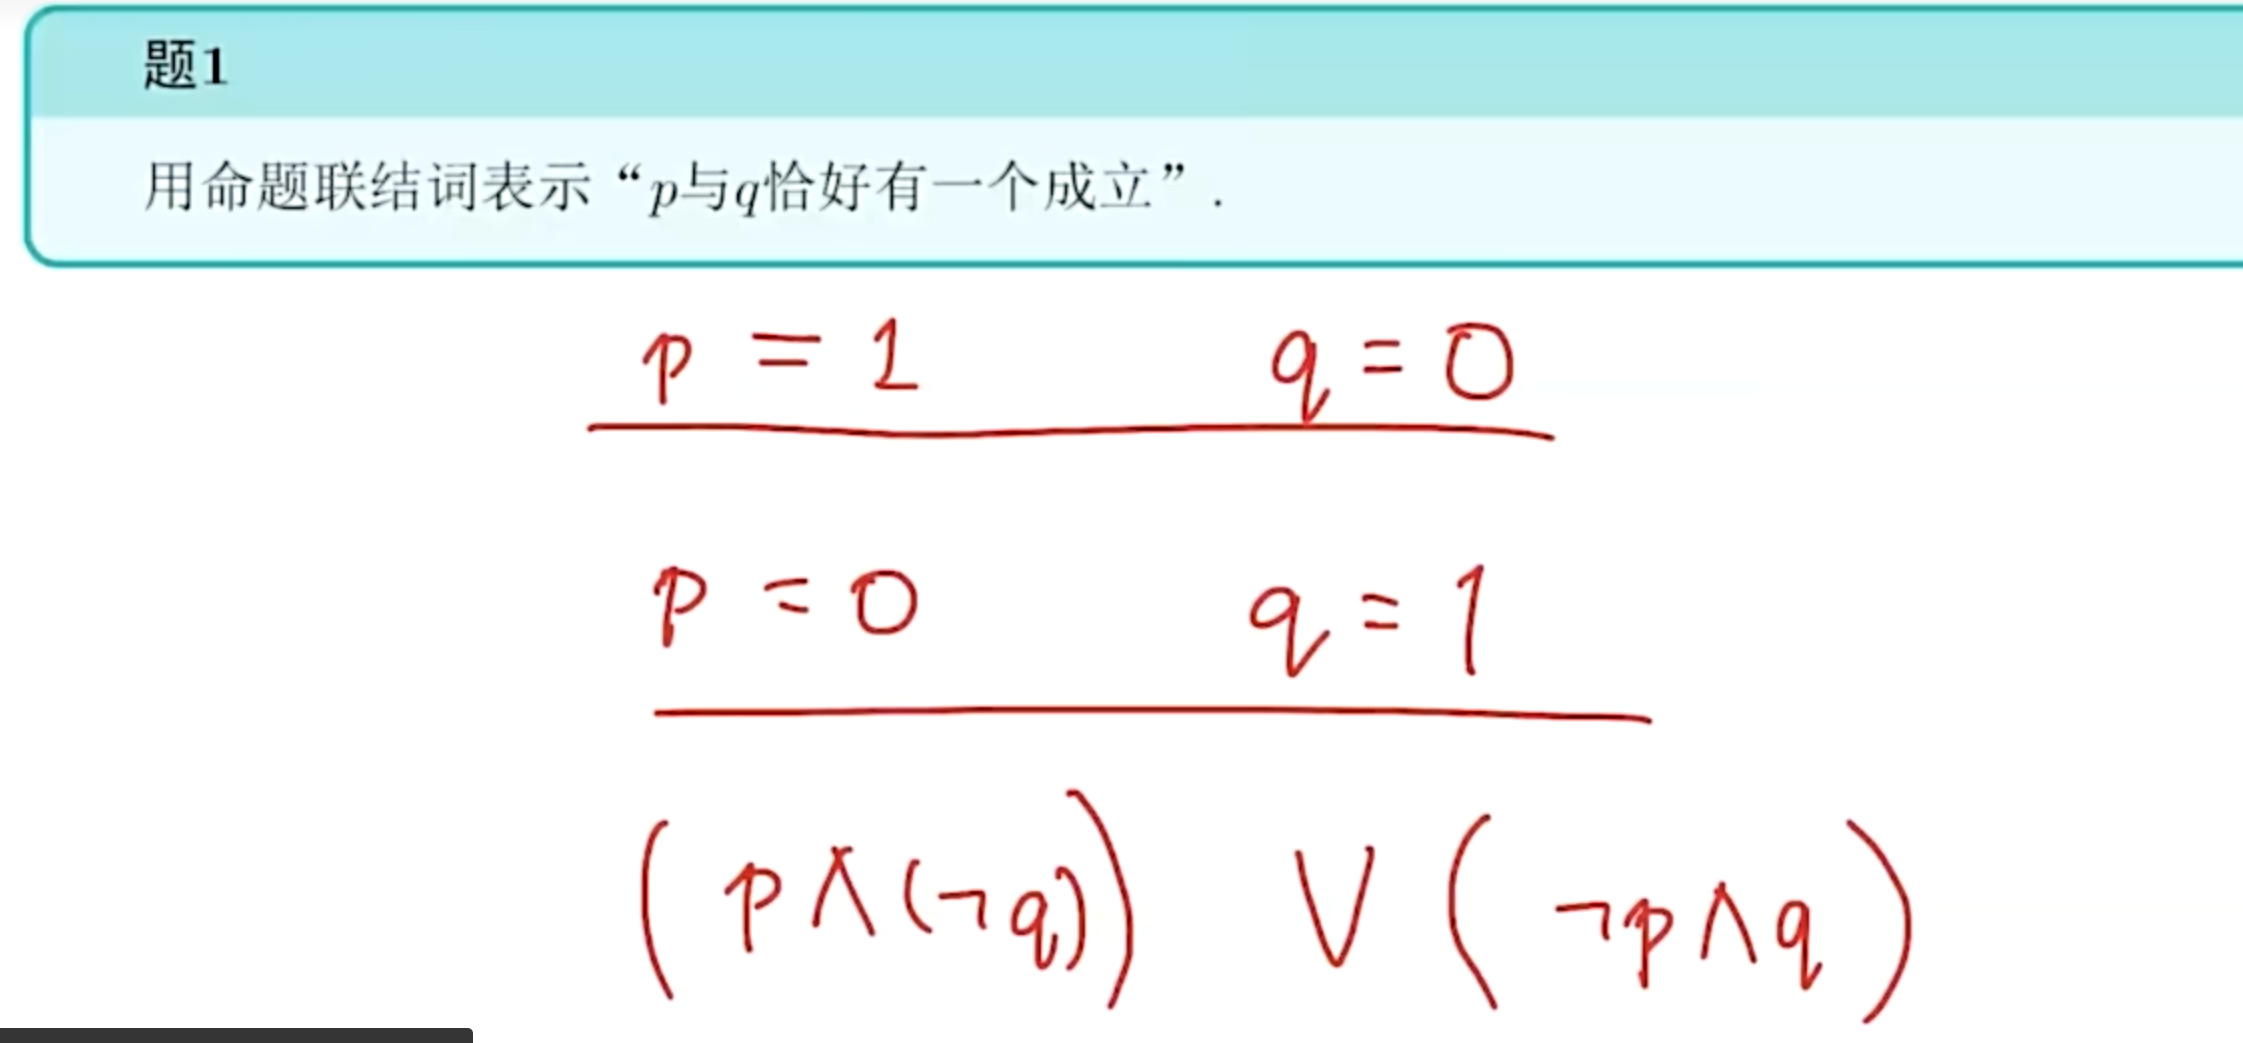 题1
用命题联结词表示“p与q恰好有一个成立”.
p = 1 q = 0
p = 0 q = 1
(p∧(¬q)) ∨ (¬p∧q)